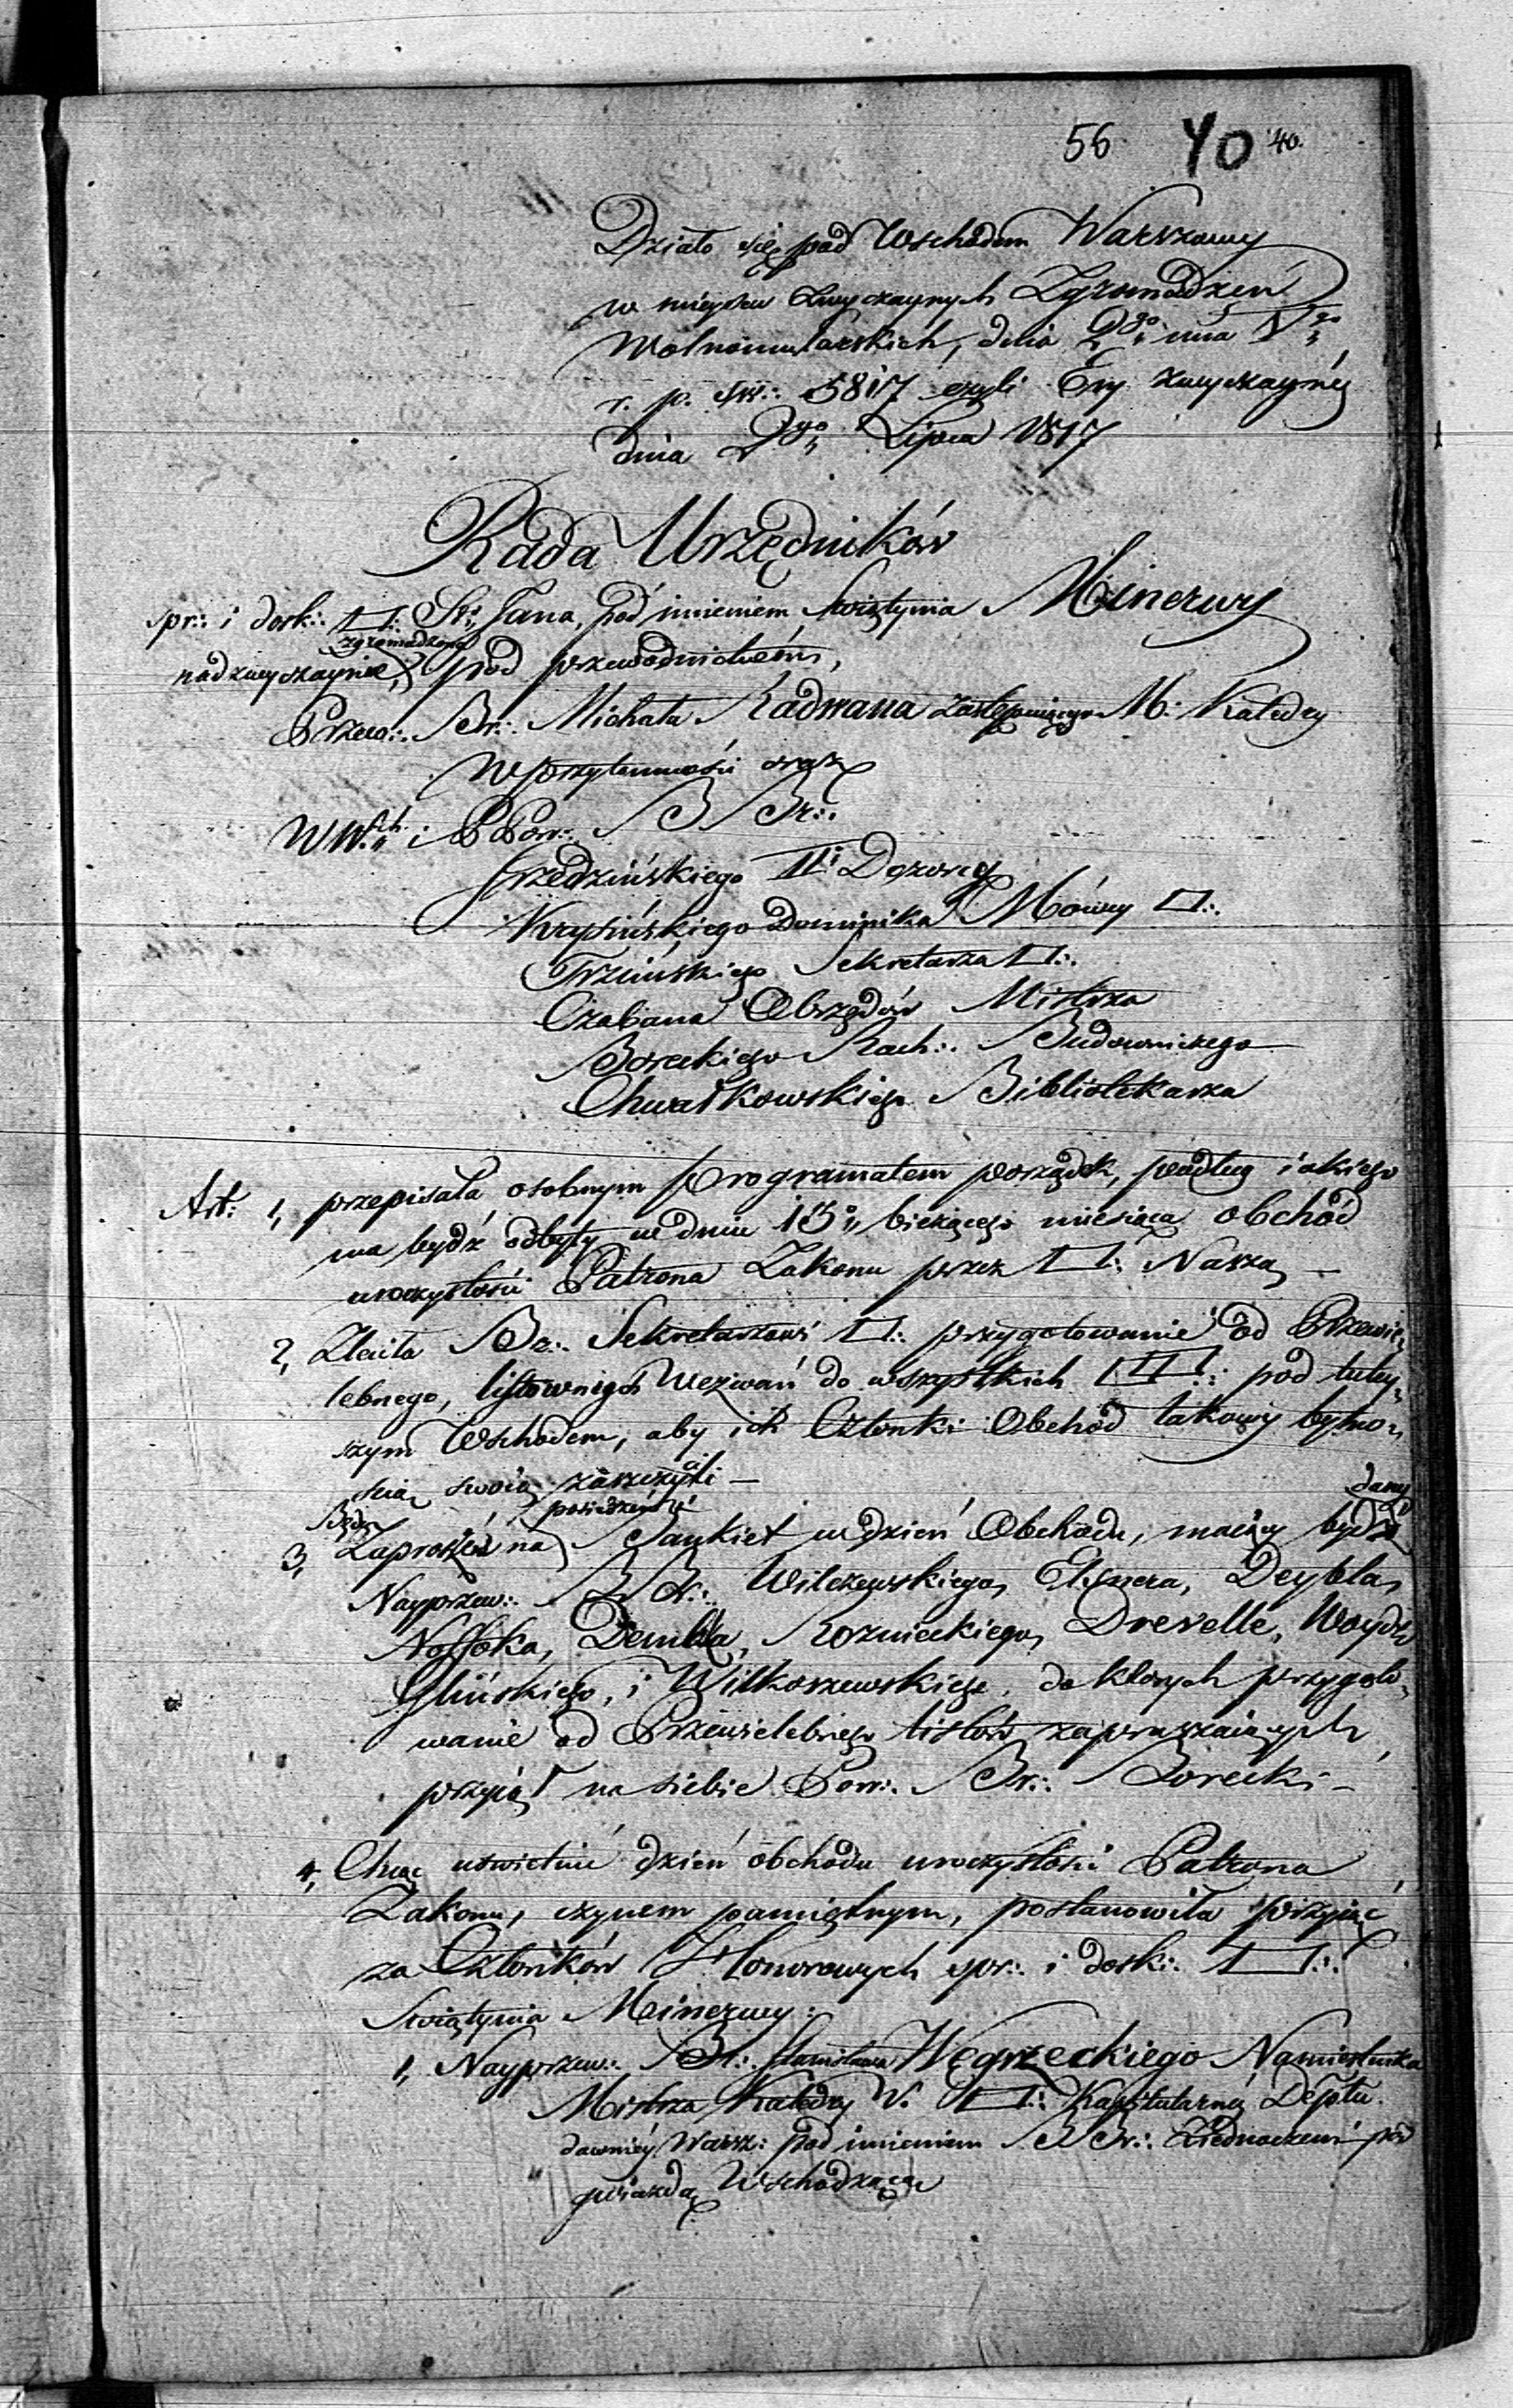 56 40 40.
Działo się pod Wschodem Warszawy
w mieyscu Zwyczaynych Zgromadzeń
Wolnomularskich, dnia 2go mca Vgo
r. p. św∴ 5817 czyli Ery zwyczayney
dnia 2go Lipca 1817
Rada Urzędników
spr∴ i dosk∴ □∴ St. Jana, pod imieniem Swiątynia Minerwy
zgromadzona
nadzwyczaynie, pod przewodnictwem,
Przew∴ Br∴ Michała Radwana zastępuiącego M∴ Katedry
W przytomności oraz
WW.ch i PPow∴ BBr∴
Grzedzińskiego II Dozorcy
Krysińskiego Dominika Mówcy □∴
Trzcińskiego Sekretarza □∴
Czabana Obrzędów Mistrza
Boreckiego Rach∴ Budowniczego
Chwałkowskiego Bibliotekarza
Art: 1, przepisała osobnym programatem porządek, podług iakiego
ma bydź odbyty w dniu 15 bieżącego miesiąca obchód
uroczystości Patrona Zakonu przez □∴ Naszą —
2, Zleciła Br∴ Sekretarzowi □∴ przygotowanie od Przewie,
lebnego, listownych Wezwań do wszystkich □□∴ pod tutey,
szym Wschodem, aby ich Członki Obchód takowy bytno,
scią swoią zaszczycili —
Będą posiedzenie dany
3, Zaproszeni na Bankiet w dzień Obchodu, maiący bydź
Nayprzew∴ BBr∴ Wilczewskiego, Elsnera, Deybla,
Nossoka, Dembla, Roznieckiego, Drevelle, Woyde
Glińskiego, i Wilkoszewskiego, do ktorych przygoto,
wanie od Przewielebnego listów zapraszaiących
przyiął na siebie Pow∴ Br∴ Borecki —
4, Chcąc uświetnić dzień obchodu uroczystości Patrona
Zakonu, czynem pamiętnym, postanowiła przyiąć
za Członków Honorowych spr∴ i dosk∴ □∴
Swiątynia Minerwy:
1, Nayprzew∴ Br∴ Stanisława Węgrzeckiego Namiestnika
Mistrza Katedry W. □∴ Kapitularney Deptu.
dawniey Warsz: pod imieniem BBr∴ Ziednoczeni pod
gwiazdą Wschodzącą